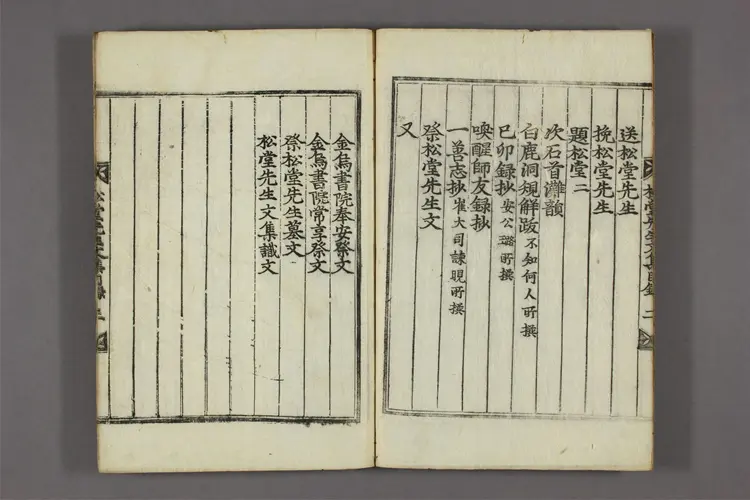 送松堂先生
挽松堂先生
題松堂二
次石首灘韻
白鹿洞規解跋不知何人所撰
己卯錄抄安公璐所撰
喚醒師友錄抄
一善志抄崔大司諫晛所撰
祭松堂先生文
又
金烏書院奉安祭文
金烏書院常享祭文
祭松堂先生墓文
松堂先生文集識文